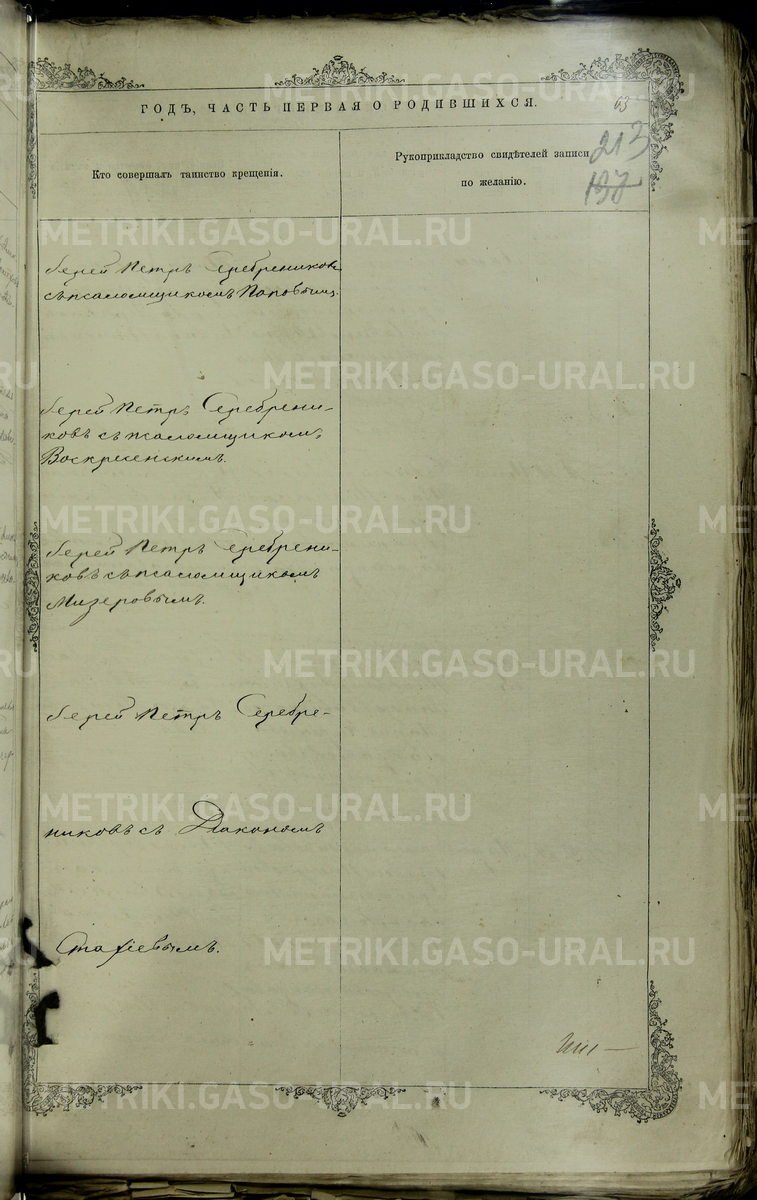 ГОДЪ, ЧАСТЬ ПЕРВАЯ О РОДИВШИХСЯ.
63
213
Кто совершалъ таинство крещенія.
Рукоприкладство свидѣтелей записи
по желанію.
Іерей Петръ Серебрениковъ
съ псаломщикомъ Поповымъ.
Іерей Петръ Серебрени-
ковъ съ псаломщикомъ
Воскресенскимъ.
Іерей Петръ Серебрени-
ковъ съ псаломщикомъ
Мизеровымъ.
Іерей Петръ Серебре-
никовъ съ Діакономъ
Стахіевымъ.
METRIKI.GASO-URAL.RU